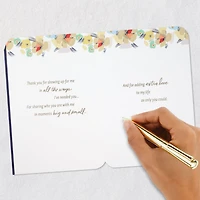 Thank you for showing up for me
in all the ways
I've needed you...
For sharing who you are with me
in moments big and small.
And for adding extra love
to my life
as only you could.